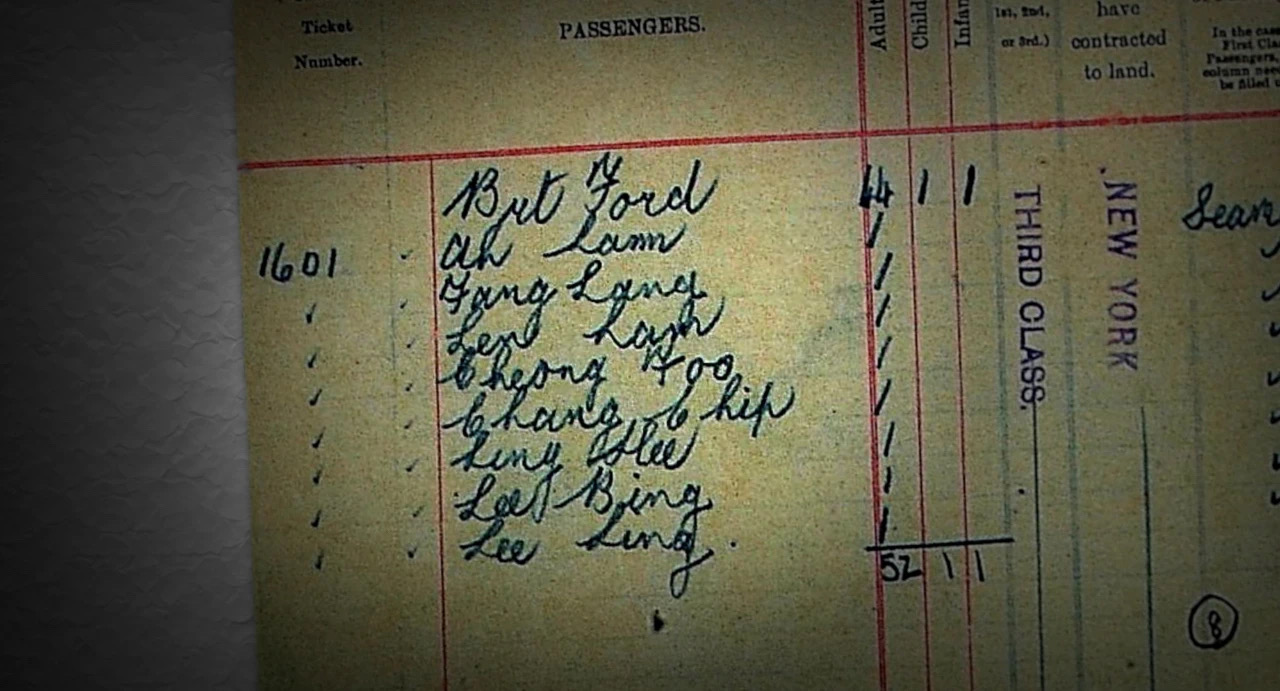 Ticket
Number.
PASSENGERS.
Adult
Child
Infan
1st, 2nd,
or 3rd.)
have
contracted
to land.
In the case
First Clas
Passengers,
column nee
be filled u
Brt Ford 44 1 1
1601 Ah Lam 1
Fang Lang 1
Len Lam 1
Cheong Foo 1
Chang Chip 1
Ling Hee 1
Lee Bing 1
Lee Ling. 1
52 1 1
THIRD CLASS.
NEW YORK
Seam
8